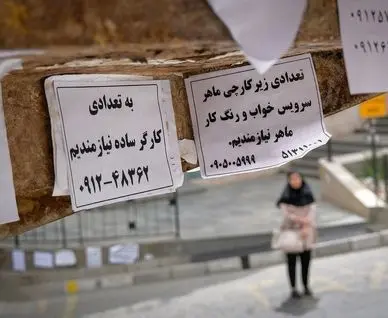 به تعدادی
کارگر ساده نیازمندیم
۰۹۱۲-۴۸۳۶۲
تعدادی زیر کارچی ماهر
سرویس خواب و رنگ کار
ماهر نیازمندیم.
۵۱۳۱۱۰۰۱
۰۹۰۵۰۰۵۹۹۹